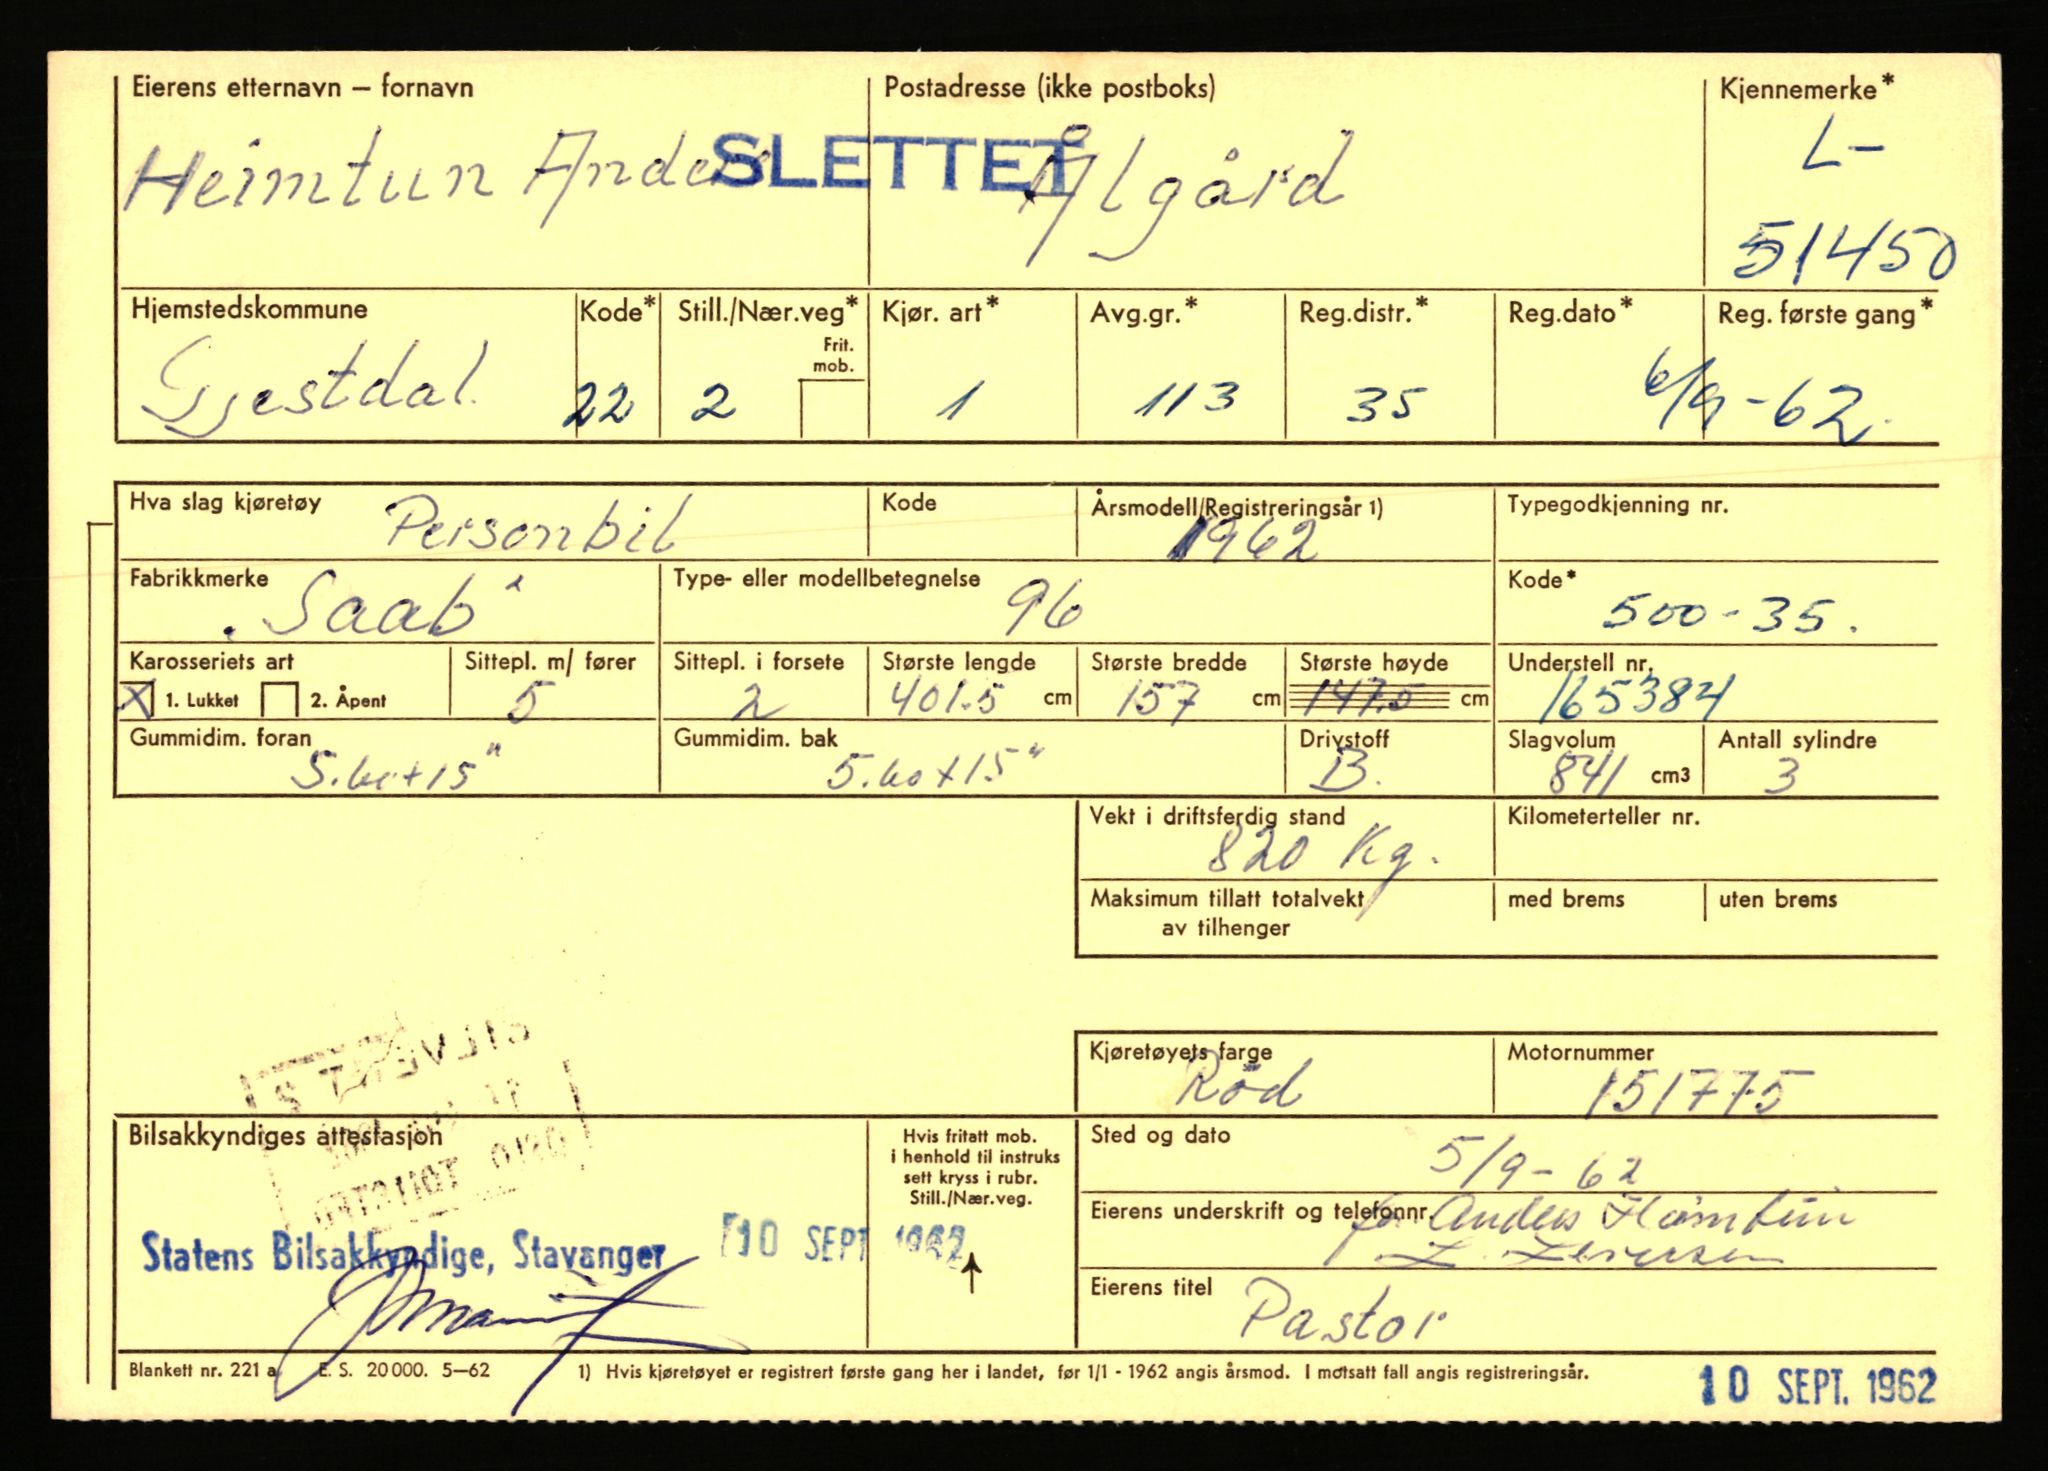 Eierens etternavn – fornavn Postadresse (ikke postboks) Kjennemerke*
Heimtun Anders SLETTET Ålgård L-
51450
Hjemstedskommune Kode* Still./Nær.veg* Kjør. art* Avg.gr.* Reg.distr.* Reg.dato* Reg. første gang*
Frit.
mob.
Gjestdal. 22 2 1 113 35 6/9-62.
Hva slag kjøretøy Kode Årsmodell/Registreringsår 1) Typegodkjenning nr.
Personbil 1962
Fabrikkmerke Type- eller modellbetegnelse Kode*
"Saab" 96 500-35.
Karosseriets art Sittepl. m/ fører Sittepl. i forsete Største lengde Største bredde Største høyde Understell nr.
X 1. Lukket 2. Åpent 5 2 401.5 cm 157 cm 147.5 cm 165384
Gummidim. foran Gummidim. bak Drivstoff Slagvolum Antall sylindre
5.60x15" 5.60x15" B. 841 cm3 3
Vekt i driftsferdig stand Kilometerteller nr.
820 Kg.
Maksimum tillatt totalvekt med brems uten brems
av tilhenger
Kjøretøyets farge Motornummer
Rød 151775
Bilsakkyndiges attestasjon Hvis fritatt mob. Sted og dato
i henhold til instruks
sett kryss i rubr.
Still./Nær.veg.
5/9-62
Eierens underskrift og telefonnr. Anders Heimtun
Statens Bilsakkyndige, Stavanger 10 SEPT 1962
Eierens titel
Pastor
Blankett nr. 221 a E. S. 20000. 5–62 1) Hvis kjøretøyet er registrert første gang her i landet, før 1/1 - 1962 angis årsmod. I motsatt fall angis registreringsår.
10 SEPT. 1962